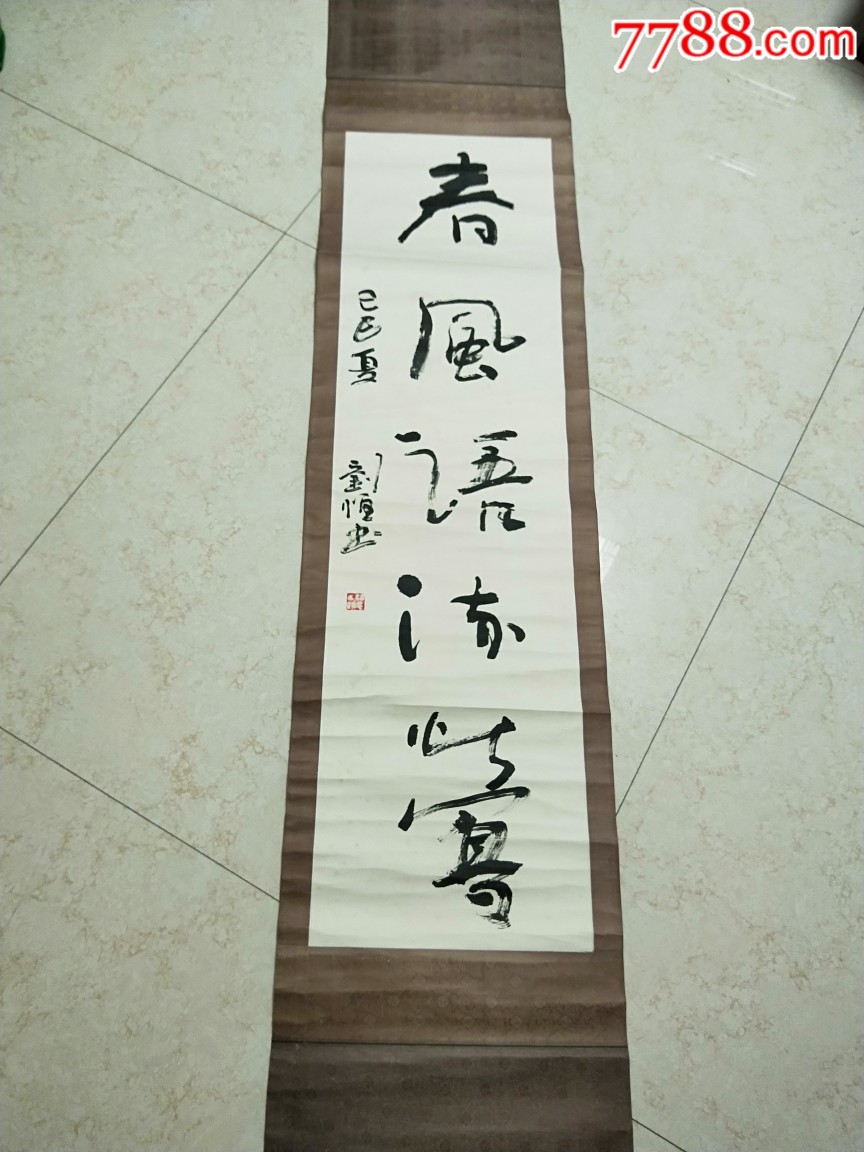 7788.com
春風語流鶯
己巳夏 劉恒書